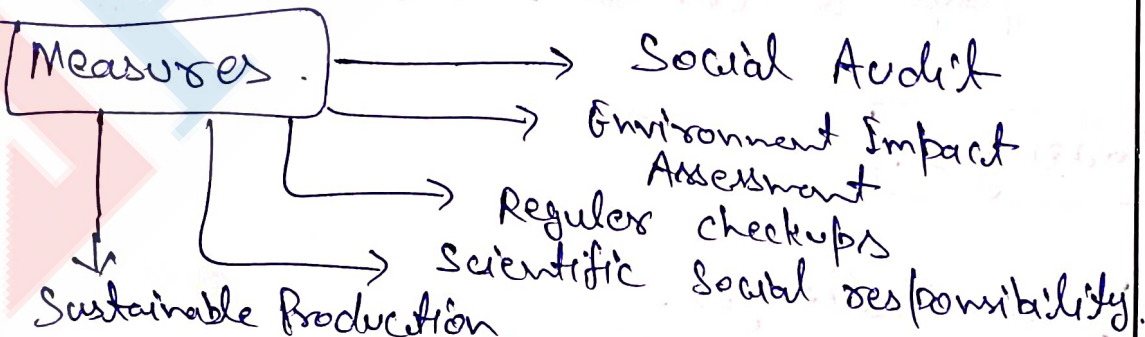 Measures.
Social Audit
Environment Impact
Assessment
Reguler checkups
Scientific Social responsibility.
Sustainable Production